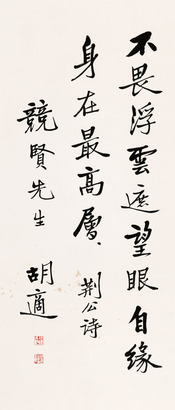 不畏浮雲遮望眼自緣
身在最高層、荆公詩
競賢先生
胡適